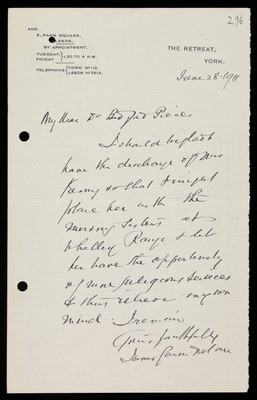 296
AND
5, PARK SQUARE,
LEEDS.
BY APPOINTMENT.
TUESDAY, } 1.30 TO 4 P.M.
FRIDAY
TELEPHONE { YORK Nº 112.
LEEDS Nº
THE RETREAT,
YORK.
June 28. 1911
My dear Dr Bedford Pierce
I should be glad to
have the discharge of Mrs
so that I might
place her with the
Nursing Sisters at
Whalley Range & let
her have the opportunity
of more religious services
& thus relieve my own
mind. I remain
Yours faithfully
James